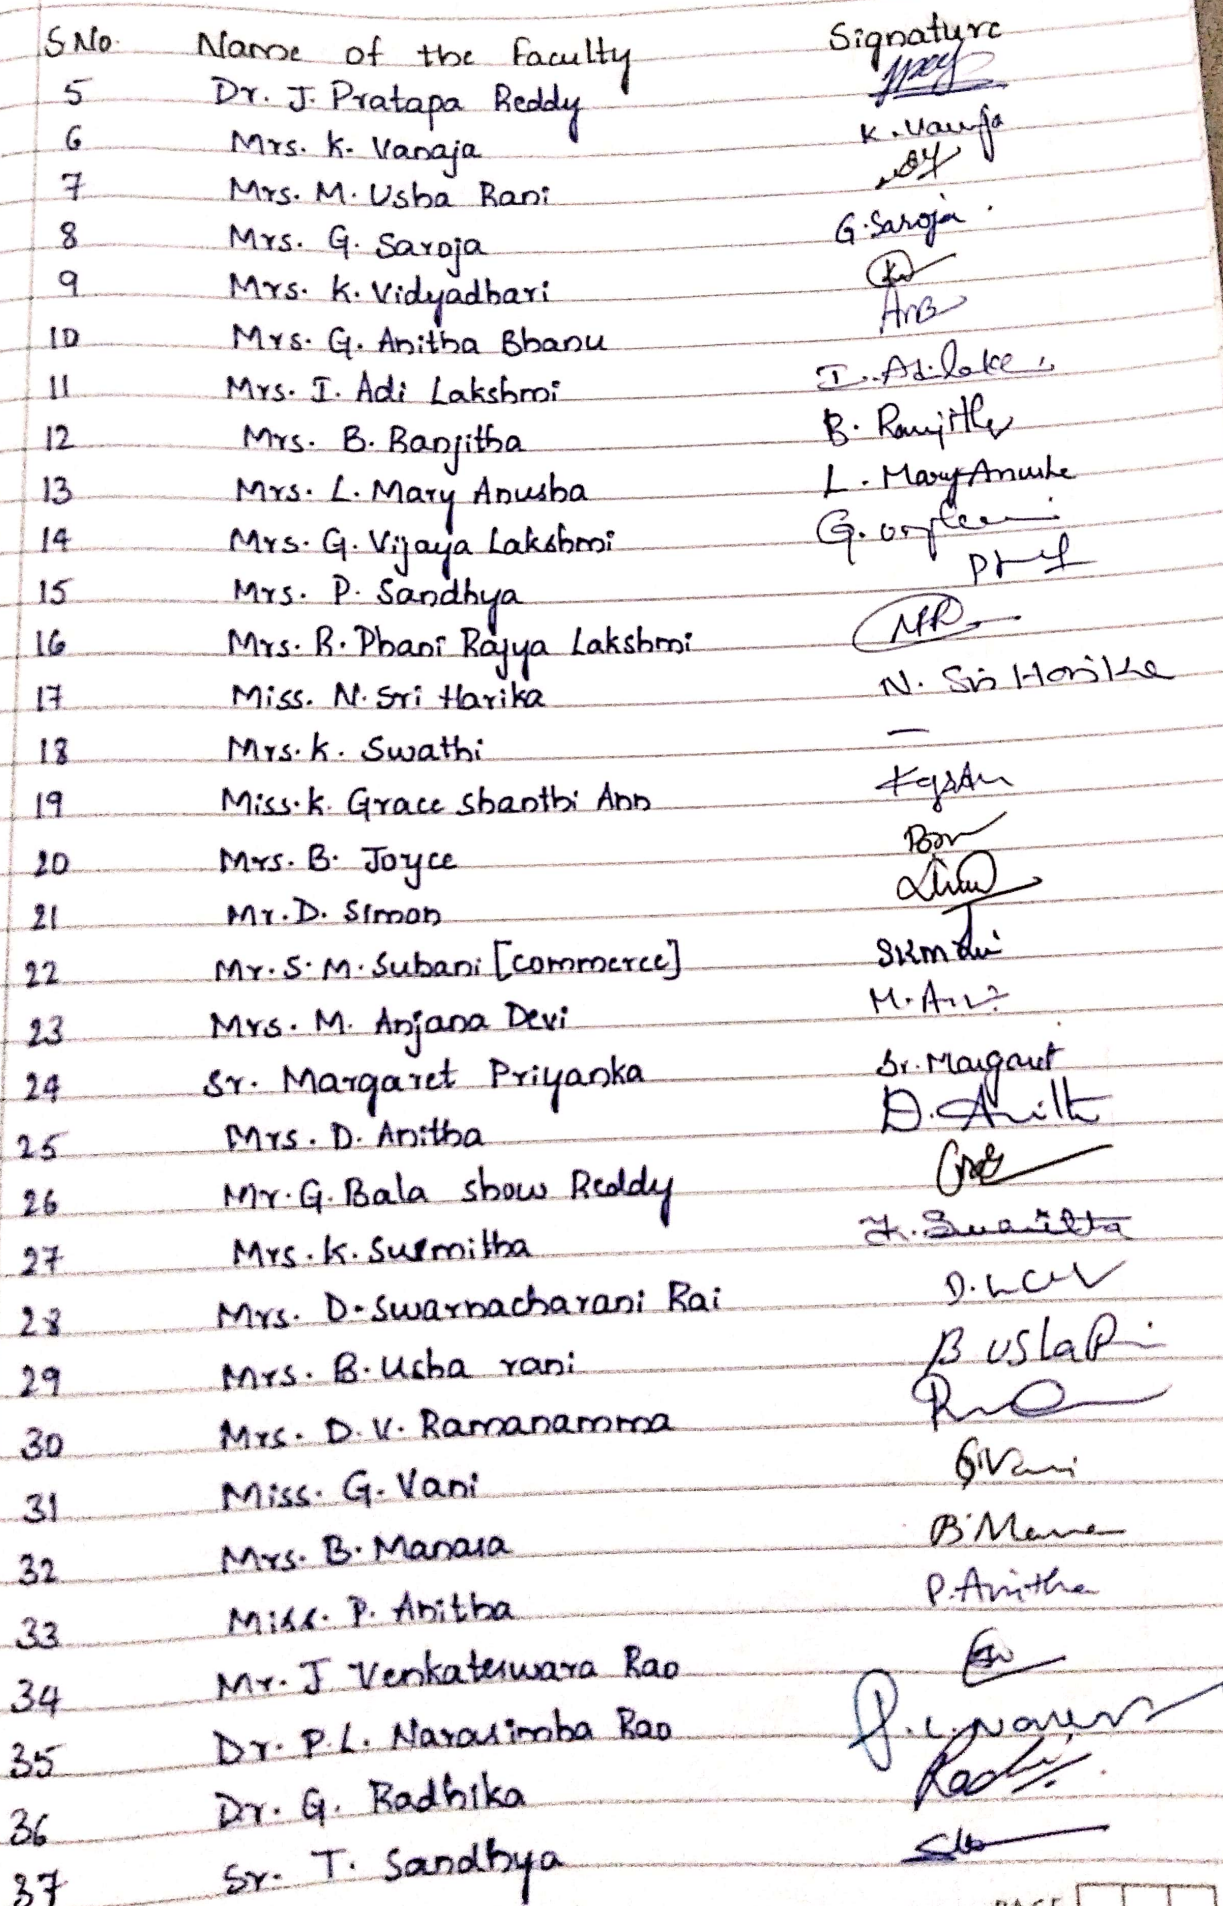 S.No. Name of the Faculty Signature
5 Dr. J. Pratapa Reddy
6 Mrs. K. Vanaja K. Vanaja
7 Mrs. M. Usha Rani
8 Mrs. G. Saroja G. Saroja
9 Mrs. K. Vidyadhari
10 Mrs. G. Anitha Bhanu
11 Mrs. I. Adi Lakshmi I. Adilake
12 Mrs. B. Ranjitha B. Ranjitha
13 Mrs. L. Mary Anusha L. Mary Anusha
14 Mrs. G. Vijaya Lakshmi G.
15 Mrs. P. Sandhya
16 Mrs. R. Phani Rajya Lakshmi
17 Miss. N. Sri Harika N. Sri Harika
18 Mrs. K. Swathi —
19 Miss. K. Grace Shanthi Ann
20 Mrs. B. Joyce
21 Mr. D. Simon
22 Mr. S. M. Subani [Commerce]
23 Mrs. M. Anjana Devi
24 Sr. Margaret Priyanka Sr. Margaret
25 Mrs. D. Anitha D. Anith
26 Mr. G. Bala show Reddy
27 Mrs. K. Susmitha
28 Mrs. D. Swarnacharani Rai
29 Mrs. B. Usha rani
30 Mrs. D. V. Ramanamma
31 Miss. G. Vani G. Vani
32 Mrs. B. Manasa
33 Miss. P. Anitha P. Anitha
34 Mr. J Venkateswara Rao
35 Dr. P. L. Narasimha Rao
36 Dr. G. Radhika
37 Sr. T. Sandhya